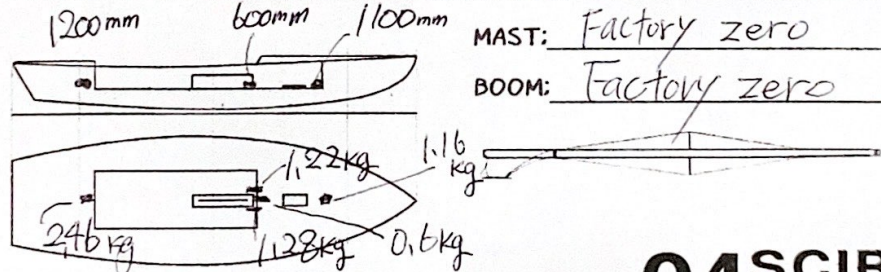 1200mm 600mm 1100mm
MAST: Factory zero
BOOM: Factory zero
1,22kg
1,16 kg
2,46kg
1,28kg
0,6kg